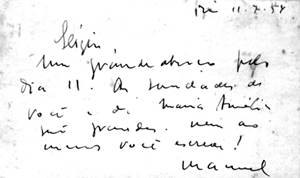 Rio 11.7.54
Sérgio,
Um grande abraço pelo
dia 11. As saudades de
você e da Maria Amélia
são grandes. Nem ao
menos você escreve!
Manuel